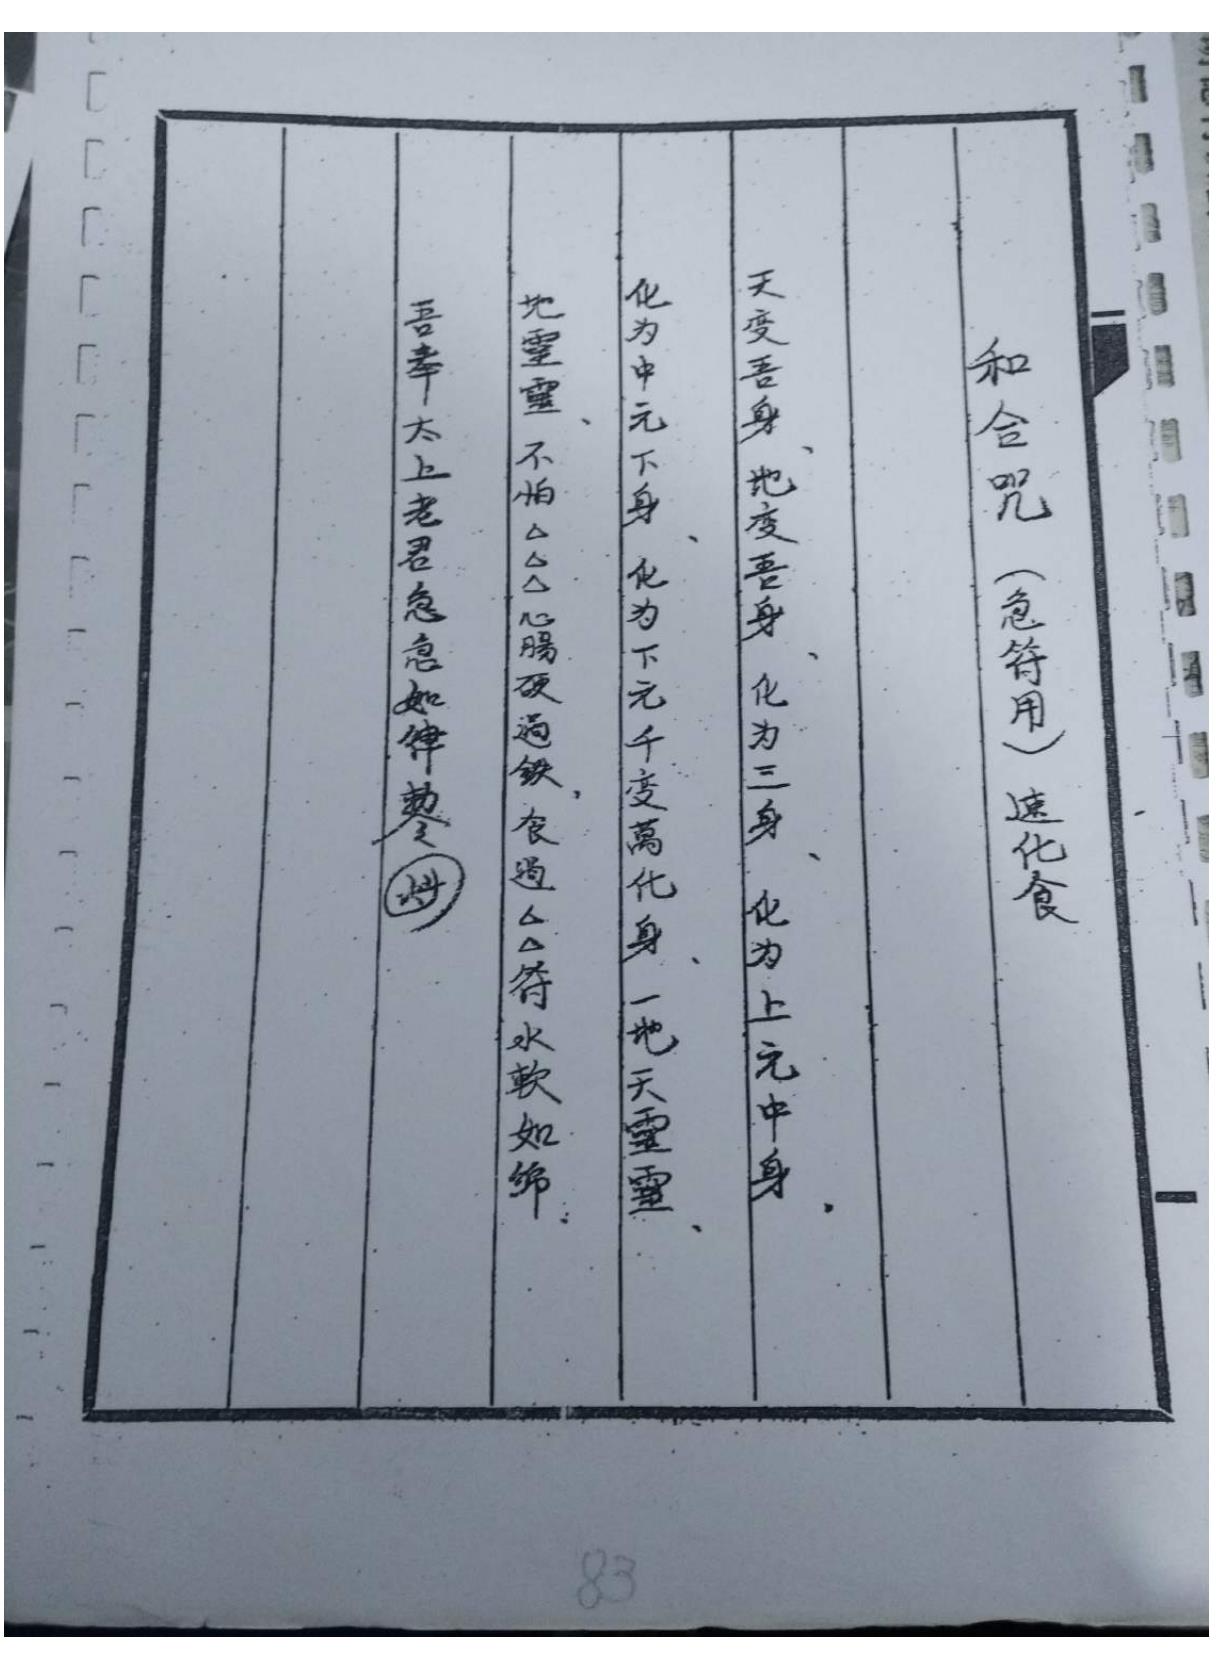 和合咒（急符用）速化食
天变吾身、地变吾身、化为三身、化为上元中身.
化为中元下身、化为下元千变萬化身、一地天靈靈、
地靈靈、不怕△△△心腸硬過鉄、食過△△符水軟如綿.
吾奉太上老君急急如律勅令
83